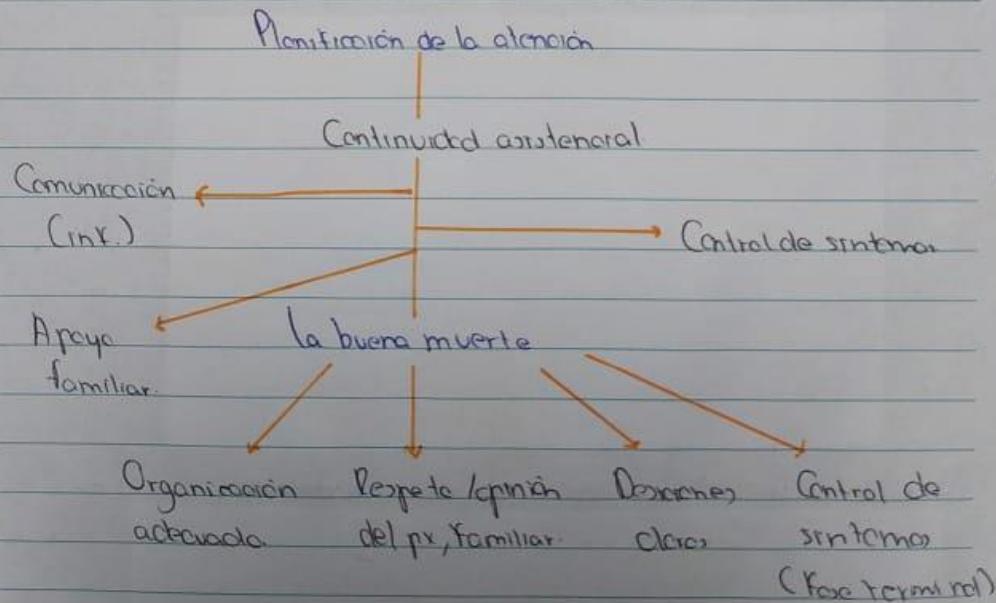 Planificación de la atención
Continuidad asistencial
Comunicación
(inf.)
Control de síntomas
Apoyo
familiar.
la buena muerte
Organización
adecuada.
Respeto/opinión
del px, familiar.
Decisiones
claras
Control de
síntomas
(Fase terminal)